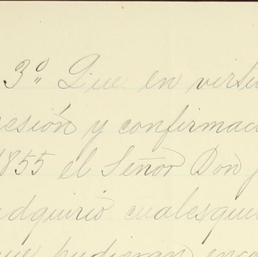 3º Que en virtu
cesión y confirmac
1855 el Señor Don
adquirió cualesqui
que pudieran enco